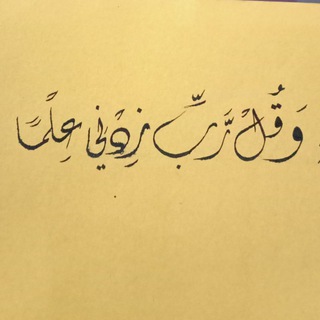 وَقُلْ رَّبِّ زِدْنِي عِلْمًا